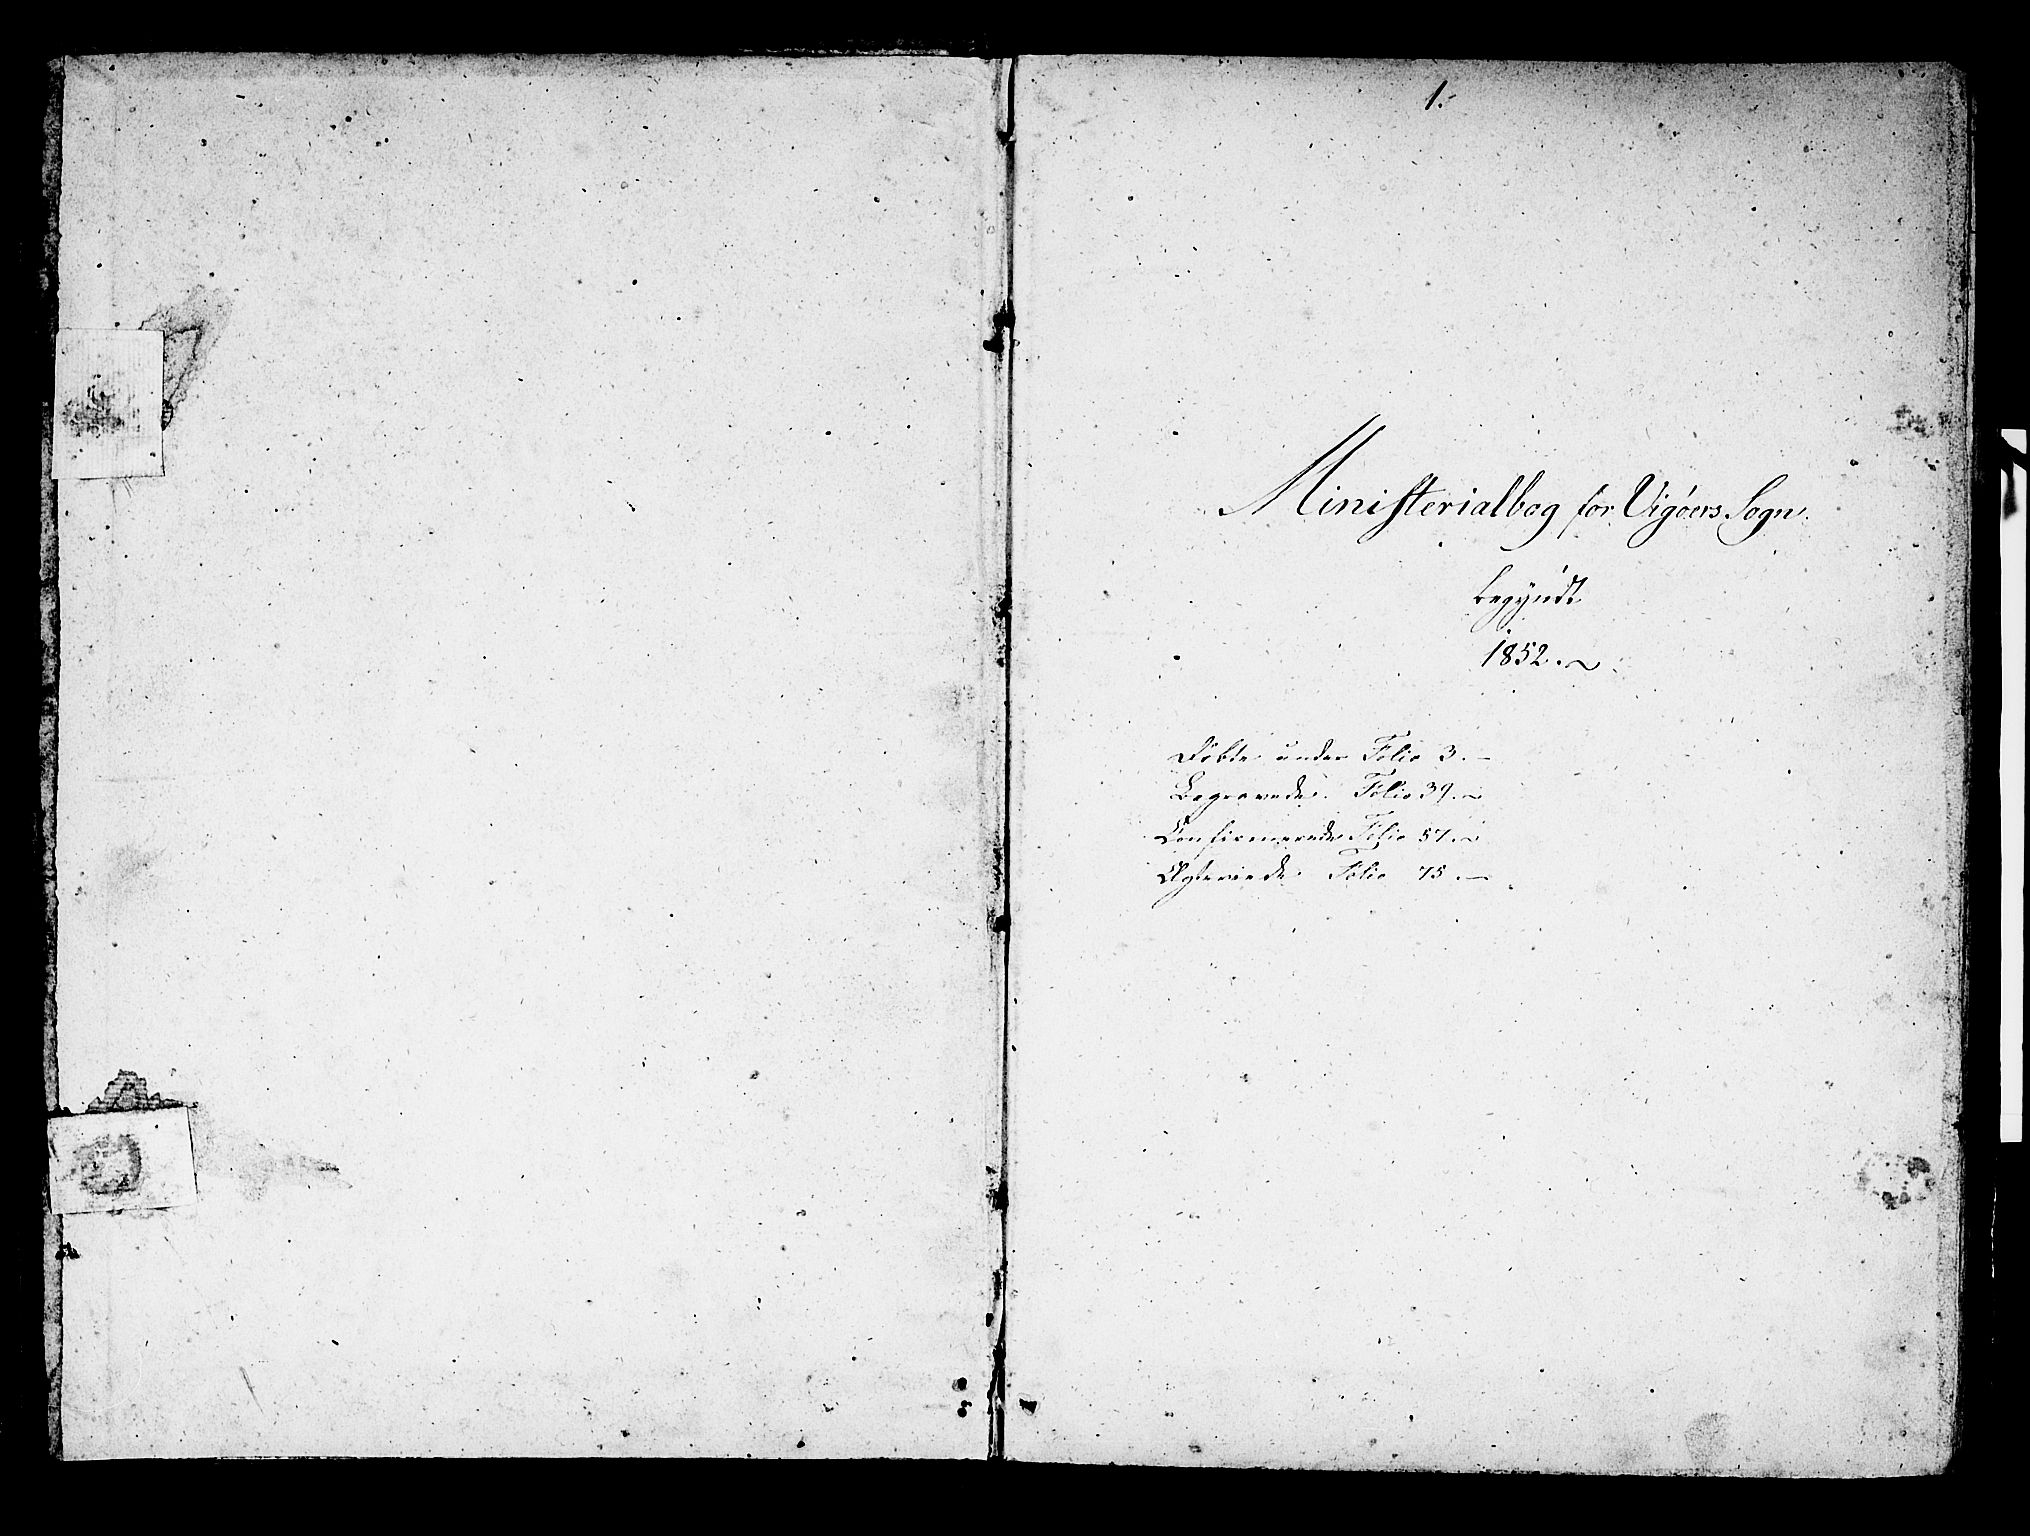 1.
Ministerialbog for Vigøers Sogn.
begyndt
1852.
Døbte under Folio 3.
Begravede. Folio 39.
Confirmerede Folio 57.
Ægteviede Folio 75.